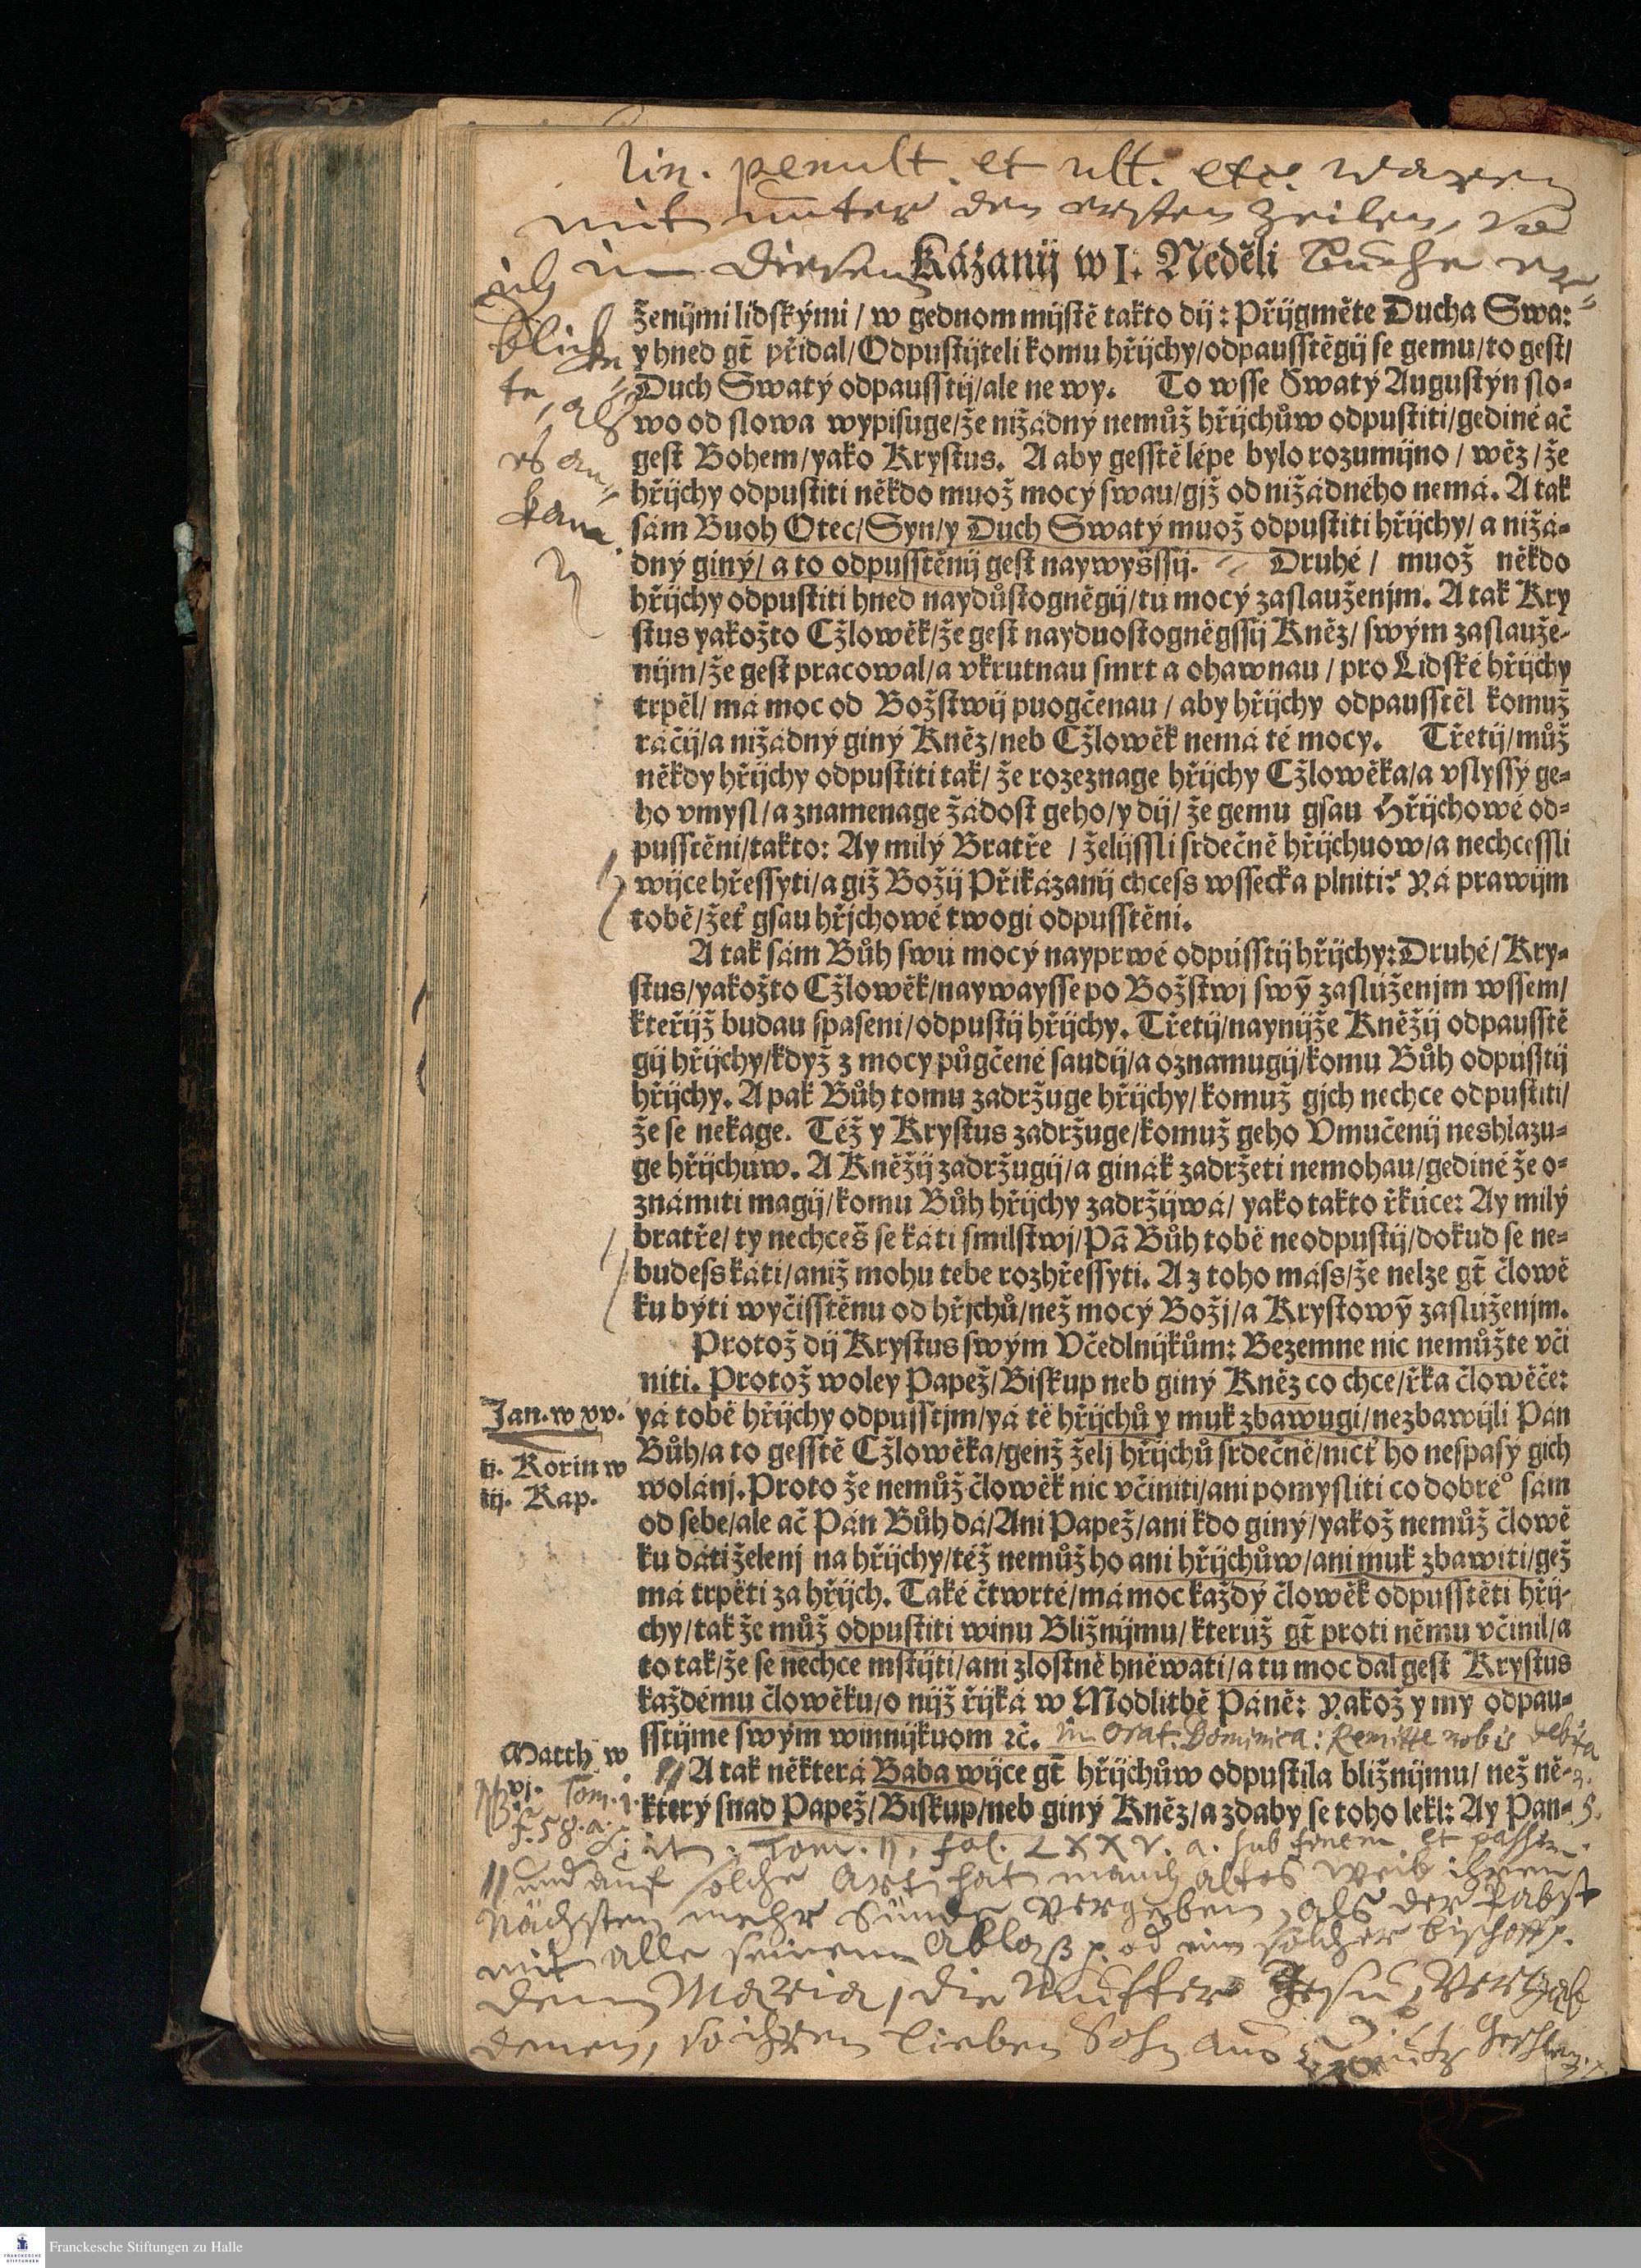 lin. penult. et ult. etc. waren
mit unter den ersten Zeilen,
ich in diesem Buche er=
blick=
te, als
es an=
kam.
Kázanij w I. Neděli
ženijmi lidſkými / w gednom mijſtě takto dij: Přijgměte Ducha Swa:
y hned gt̃ přidal/Odpuſtijteli komu hřijchy/odpauſſtěgij ſe gemu/to geſt/
Duch Swatý odpauſſtij/ale ne wy. To wſſe Swatý Auguſtýn ſlo-
wo od ſlowa wypiſuge/že nižádný nemůž hřijchůw odpuſtiti/gediné ač
geſt Bohem/yako Kryſtus. A aby geſſtě lépe bylo rozumijno / wěz/že
hřijchy odpuſtiti někdo muož mocý ſwau/gjž od nižádného nemá. A tak
ſám Buoh Otec/Syn/y Duch Swatý muož odpuſtiti hřijchy/ a nižá-
dný giný/ a to odpuſſtěnij geſt naywyšſſij. Druhé / muož někdo
hřijchy odpuſtiti hned naydůſtogněgij/tu mocý zaſlauženjm. A tak Kry
ſtus yakožto Cžlowěk/že geſt nayduoſtogněgſſij Kněz/ ſwým zaſlauže-
nijm/že geſt pracowal/a vkrutnau ſmrt a ohawnau / pro Lidſké hřijchy
trpěl/ má moc od Božſtwij puogčenau / aby hřijchy odpauſſtěl komuž
ráčij/a nižádný giný Kněz/neb Cžlowěk nemá té mocy. Třetij/můž
někdy hřijchy odpuſtiti tak/ že rozeznage hřijchy Cžlowěka/a vſlyſſý ge-
ho vmyſl/a znamenage žádoſt geho/y dij/ že gemu gſau Hřijchowé od-
puſſtěni/takto: Ay milý Bratře / želijſſli ſrdečně hřijchuow/a nechceſſli
wijce hřeſſyti/a giž Božij Přikázanij chceſs wſſecka plniti: Yá prawijm
tobě/žeť gſau hřjchowé twogi odpuſſtěni.
A tak ſám Bůh ſwú mocý nayprwé odpúſſtij hřijchy: Druhé/Kry-
ſtus/yakožto Cžlowěk/naywayſſe po Božſtwj ſwỹ zaſlúženjm wſſem/
kteřijž budau ſpaſeni/odpuſtij hřijchy. Třetij/naynijže Kněžij odpauſſtě
gij hřijchy/když z mocy půgčené ſaudij/a oznamugij/komu Bůh odpúſtij
hřijchy. A pak Bůh tomu zadržuge hřijchy/komuž gjch nechce odpuſtiti/
že ſe nekage. Též y Kryſtus zadržuge/komuž geho Vmučenij neshlazu-
ge hřijchuw. A Kněžij zadržugij/a ginák zadržeti nemohau/gediné že o-
známiti magij/komu Bůh hřijchy zadržijwá/ yako takto řkúce: Ay milý
bratře/ ty nechceš ſe káti ſmilſtwj/Pã Bůh tobě neodpuſtij/dokud ſe ne-
budeſs káti/aniž mohu tebe rozhřeſſyti. A z toho máſs/že nelze gt̃ člowě
ku býti wyčiſſtěnu od hřjchů/než mocý Božj/a Kryſtowỹ zaſlúženjm.
Protož dij Kryſtus ſwým Včedlnijkům: Bezemne nic nemůžte vči
niti. Protož woley Papež/Biſkup neb giný Kněz co chce/řka člowěče:
Jan. w xv.
yá tobě hřijchy odpuſſtjm/yá tě hřijchů y muk zbawugi/nezbawijli Pán
Bůh/a to geſſtě Cžlowěka/genž želj hřijchů ſrdečně/nicť ho neſpaſý gich
ij. Korin w
iij. Kap.
wolánj. Proto že nemůž člowěk nic včiniti/ani pomyſliti co dobréº ſám
od ſebe/ale ač Pán Bůh dá/Ani Papež/ani kdo giný/yakož nemůž člowě
ku dáti želenj na hřijchy/též nemůž ho ani hřijchůw/ani muk zbawiti/gež
má trpěti za hřijch. Také čtwrté/má moc každý člowěk odpuſſtěti hřij-
chy/tak že můž odpuſtiti winu Bližnijmu/kterúž gt̃ proti němu včinil/a
to tak/že ſe nechce mſtijti/ani zloſtně hněwati/a tu moc dal geſt Kryſtus
každému člowěku/o nijž řijká w Modlitbě Páně: Yakož y my odpau-
ſſtijme ſwým winnijkuom ꝛč. in Orat: Dominica: Remitte nobis debita
Matth w
vj. Tom. 1.
f. 58. a.
A tak některá Baba wijce gt̃ hřijchůw odpuſtila bližnijmu/ než ně-
který ſnad Papež/Biſkup/neb giný Kněz/a zdaby ſe toho lekl: Ay Pan-
Tom. II. fol. LXXV. a. sub finem et passim.
// und auf solche Art hat manch altes Weib ihren
Nächsten mehr Sünde vergeben, als der Pabst
mit alle seinem Ablaß p. od ein solcher bischoff p.
denn Maria, die Mutter Jesu, vergab
denen, so ihren lieben Sohn ans Creutz